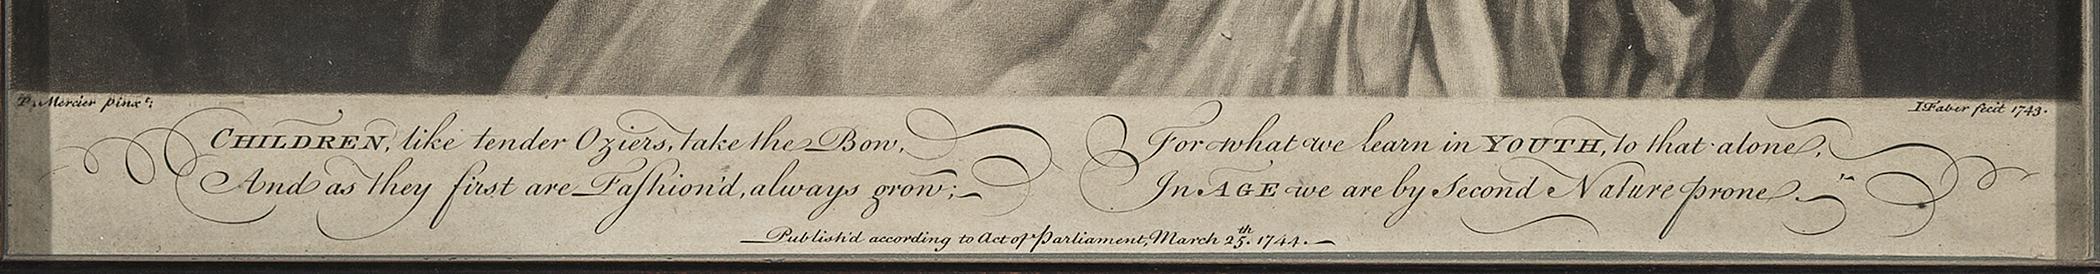 P. Mercier pinxt:
I Faber fecit 1743.
CHILDREN, like tender Oziers, take the Bow,
And as they first are Fashion'd, always grow;
For what we learn in YOUTH, to that alone,
In AGE we are by Second Nature prone.
Publish'd according to Act of Parliament, March 25th. 1744.